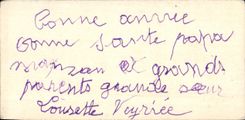 Bonne année
bonne santé papa
maman et grands
parents grande sœur
Lousette Veyriée